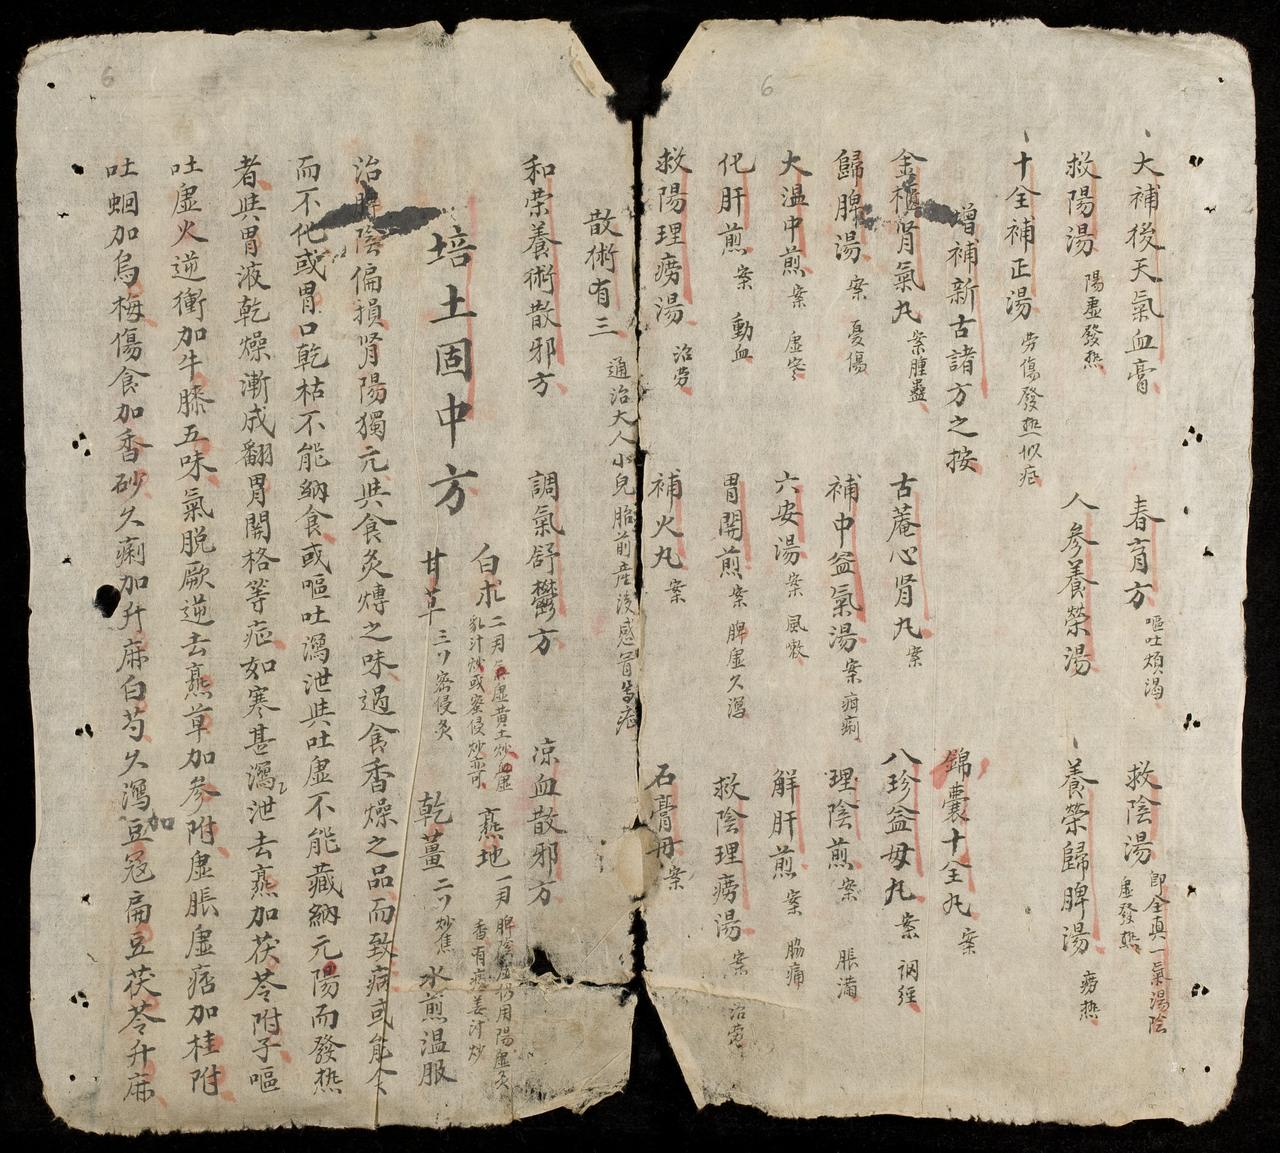 大補後天氣血膏　春育方 嘔吐煩渴　救陰湯 即全真一氣湯陰虛發熱
救陽湯 陽虛發熱　人參養榮湯　養榮歸脾湯 癆熱
十全補正湯 勞傷發熱似瘧
增補新古諸方之按　錦囊十全丸 案
金櫃腎氣丸 案腫蠱　古菴心腎丸 案　八珍益母丸 案 調經
歸脾湯 案 憂傷　補中益氣湯 案 疳痢　理陰煎 案 脹滿
大溫中煎 案 虛寒　六安湯 案 風嗽　解肝煎 案 脇痛
化肝煎 案 動血　胃關煎 案 脾虛久瀉　救陰理癆湯 案 治勞
救陽理癆湯 治勞　補火丸 案　石膏丹 案
散術有三 通治大人小兒胎前產後感冒等症
和榮養術散邪方　調氣舒鬱方　涼血散邪方
培土固中方
白朮 二刄氣虛黃土炒血虛乳汁炒或蜜侵炒亦可　熟地 一刄脾陰虛仍用陽虛炙香有痰姜汁炒
甘草 三𠂊密侵炙　乾薑 二𠂊炒焦　水煎溫服
治脾陰偏損腎陽獨亢與食炙煿之味過食香燥之品而致病或能食
而不化或胃口乾枯不能納食或嘔吐瀉泄與吐虛不能藏納元陽而發熱
者與胃液乾燥漸成翻胃關格等症如寒甚瀉泄去熟加茯苓附子嘔
吐虛火逆衝加牛膝五味氣脫厥逆去熟草加參附虛脹虛痞加桂附
吐蛔加烏梅傷食加香砂久痢加升麻白芍久瀉加豆冦扁豆茯苓升麻
6
6